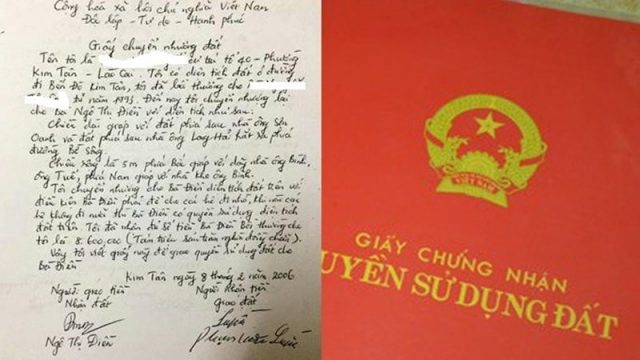 Cộng hoà xã hội chủ nghĩa Việt Nam
Độc lập - Tự do - Hạnh phúc
Giấy chuyển nhượng đất
Tên tôi là cư trú tổ 40 - Phường
Kim Tân - Lào Cai. Tôi có diện tích đất ở đường
đi Bến Đá Kim Tân, tôi đã bồi thường cho
từ năm 1993. Đến nay tôi chuyển nhượng lại
cho Bà Ngô Thị Điền với diện tích như sau:
Chiều dài giáp với đất phía sau nhà ông
Oanh và đất phía sau nhà ông phía
đường Bê tông.
Chiều rộng là 5m phía Bắc giáp với nhà ông Bình,
ông Tuế, phía Nam giáp với nhà kho ông Bình.
Tôi chuyển nhượng cho Bà Điền diện tích đất trên với
điều kiện Bà Điền phải để cho cá hồ đi nhờ, khi nào cá
hồ không đi nữa thì Bà Điền có quyền sử dụng diện tích
đất trên. Tôi đã nhận đủ số tiền Bà Điền Bồi thường cho
tôi là 8.600.000 (Tám triệu sáu trăm nghìn đồng chẵn).
Vậy tôi viết giấy này để giao quyền sử dụng đất cho
Bà Điền
Kim Tân ngày 8 tháng 2 năm 2006
Người giao tiền Người nhận tiền
Nhận đất Giao đất
Ngô Thị Điền
VIỆT NAM
GIẤY CHỨNG NHẬN
UYỀN SỬ DỤNG ĐẤT